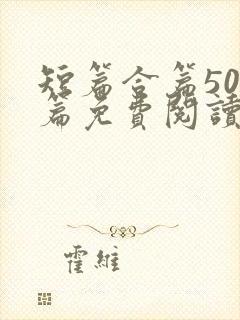 短篇合篇50
篇免費閱讀
霍維